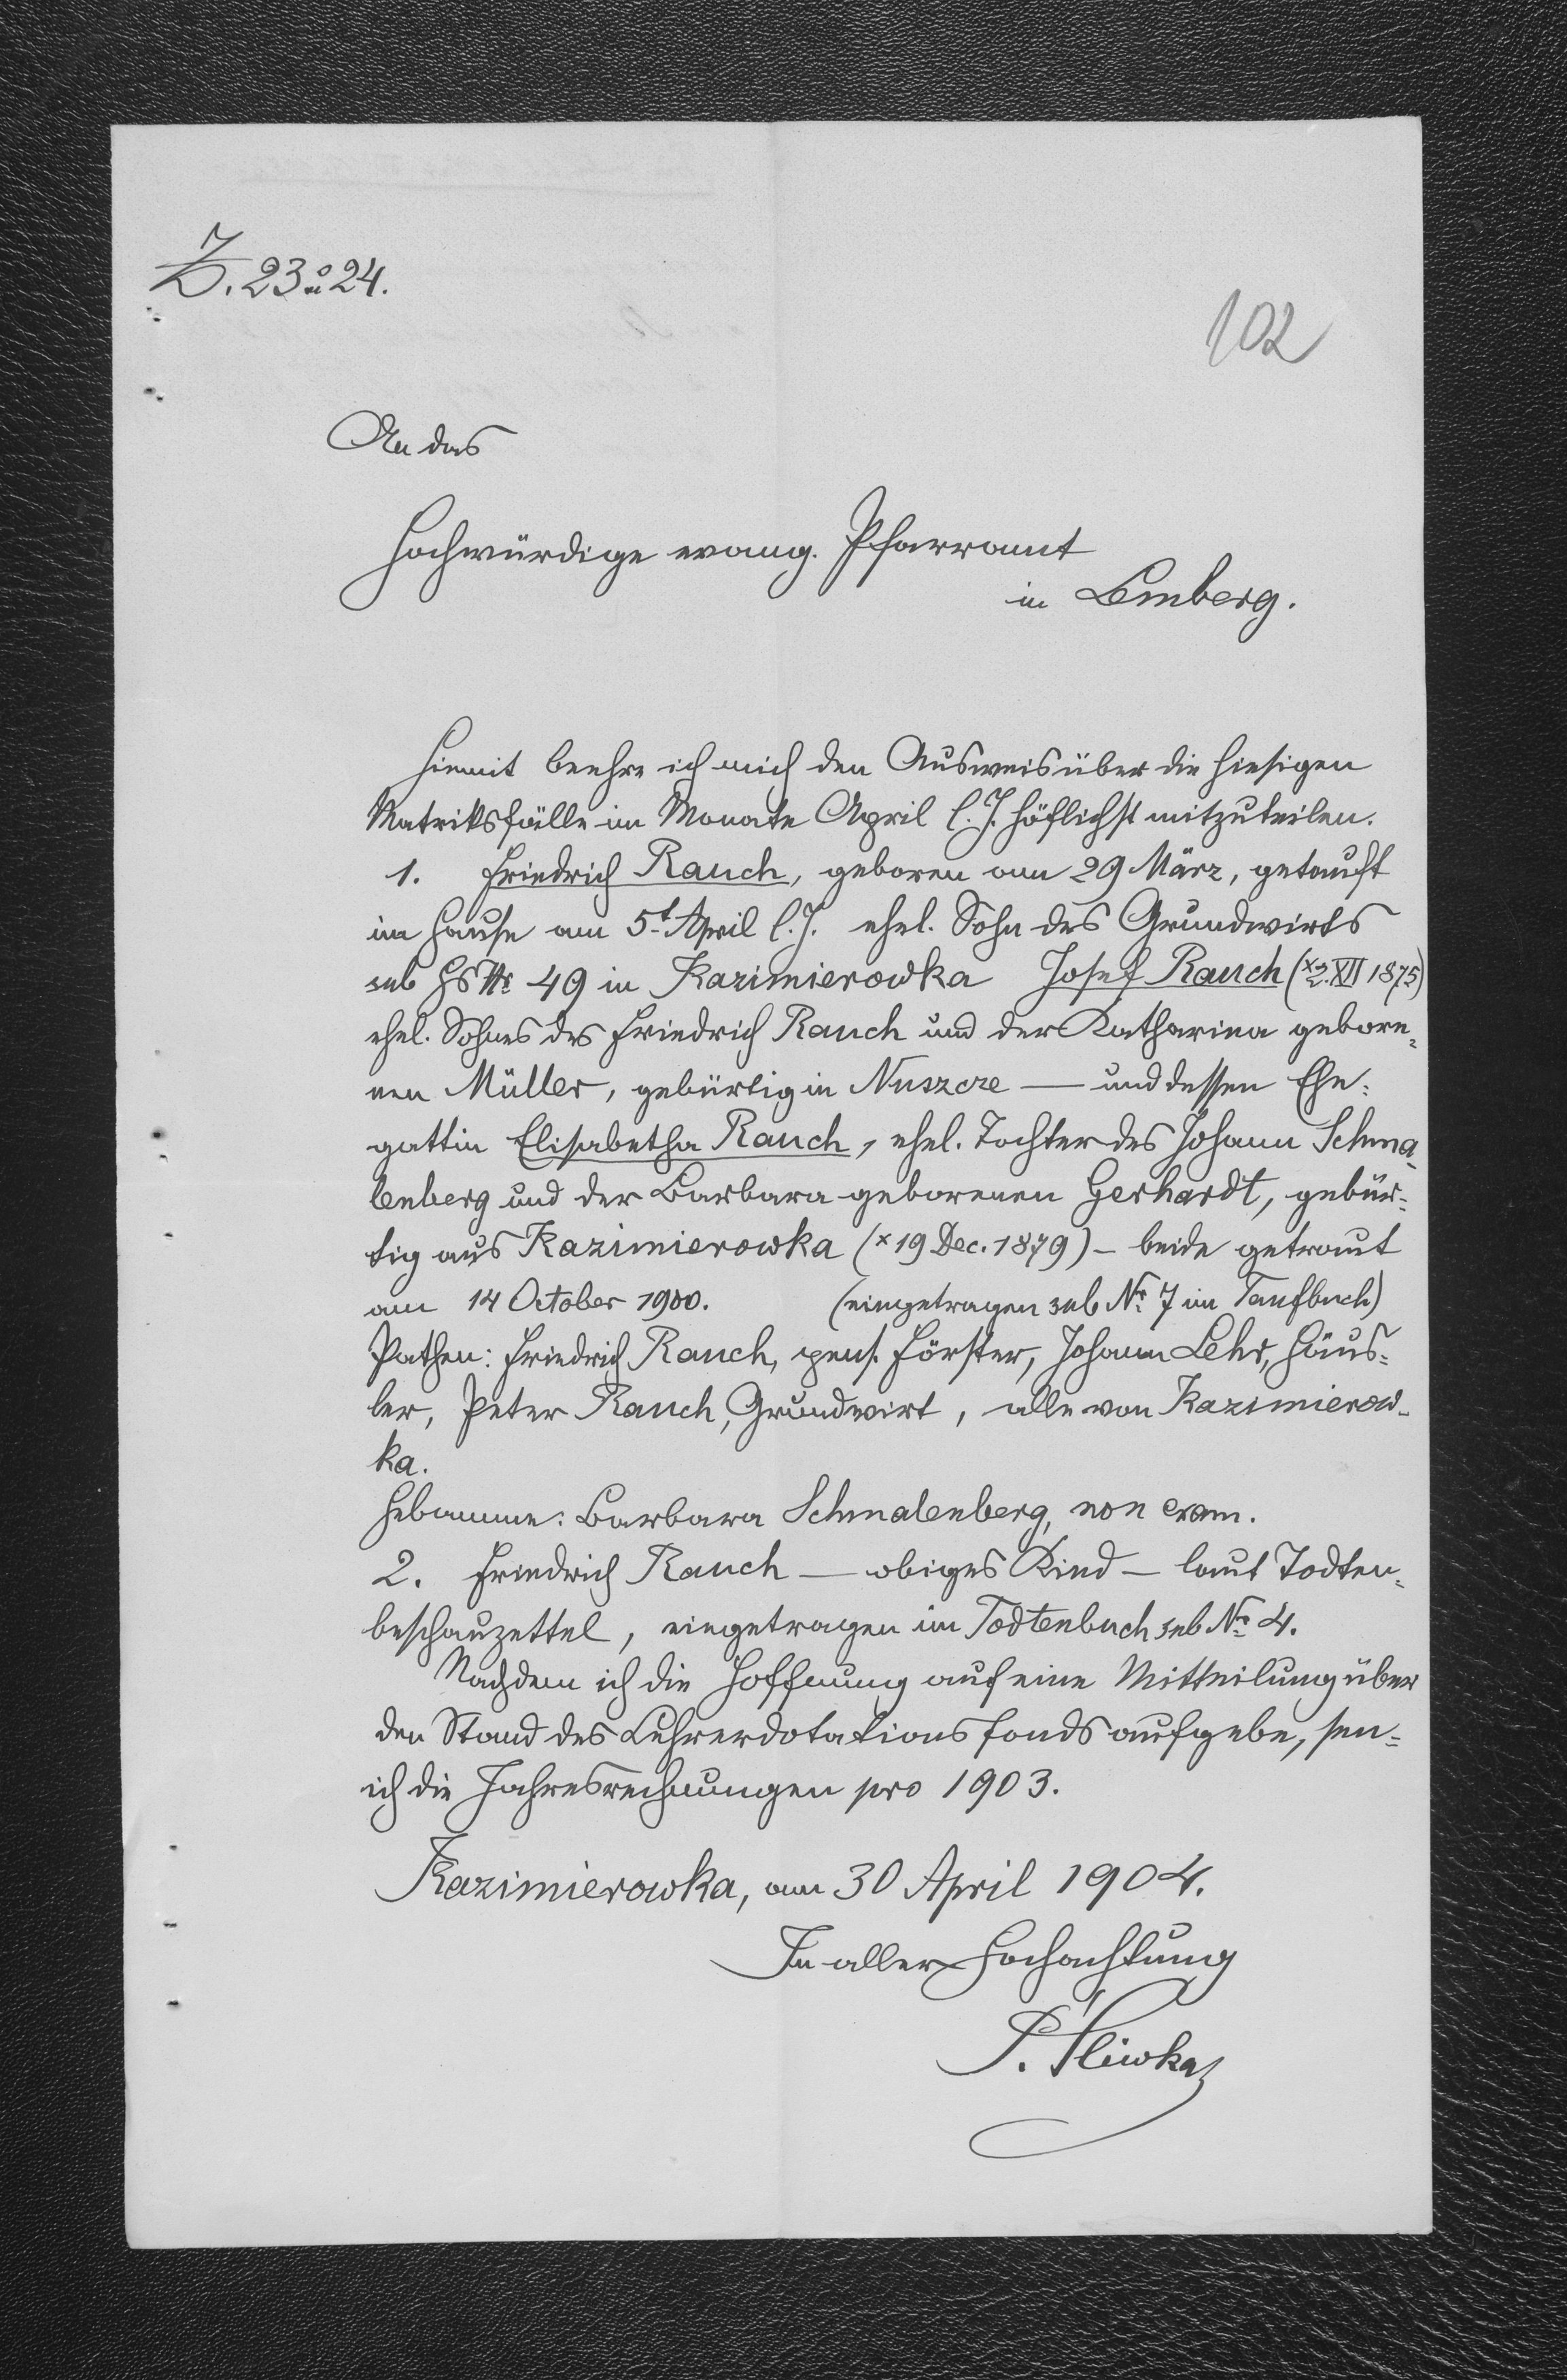 Z. 23 u 24.
102
An das
Hochwürdige evang. Pfarramt
in Lemberg.
Hiemit beehre ich mich den Ausweis über die hiesigen
Matriksfälle im Monate April l. J. höflichst mitzuteilen.
1. Friedrich Rauch, geboren am 29 März, getauft
im Hause am 5t April l. J. ehel. Sohn des Grundwirts
sub HS Nr 49 in Kazimierowka Josef Rauch (x 2. XII 1875)
ehel. Sohnes des Friedrich Rauch und der Katharina gebore-
nen Müller, gebürtig in Nuszcze — und dessen Ehe-
gattin Elisabetha Rauch, ehel. Tochter des Johann Schma-
lenberg und der Barbara geborenen Gerhardt, gebür-
tig aus Kazimierowka (x 19 Dec. 1879) – beide getraut
am 14 October 1900. (eingetragen sub Nr. 7 im Taufbuch)
Pathen: Friedrich Rauch, pens. Förster, Johann Lehr, Häus-
ler, Peter Rauch, Grundwirt, alle von Kazimierow-
ka.
Hebamme: Barbara Schmalenberg, non exam.
2. Friedrich Rauch — obiges Kind — laut Todten-
beschauzettel, eingetragen im Todtenbuch sub Nr. 4.
Nachdem ich die Hoffnung auf eine Mitteilung über
den Stand des Lehrerdotationsfonds aufgebe, sen-
ich die Jahresrechnungen pro 1903.
Kazimierowka, am 30 April 1904.
In aller Hochachtung
P. Śliwka